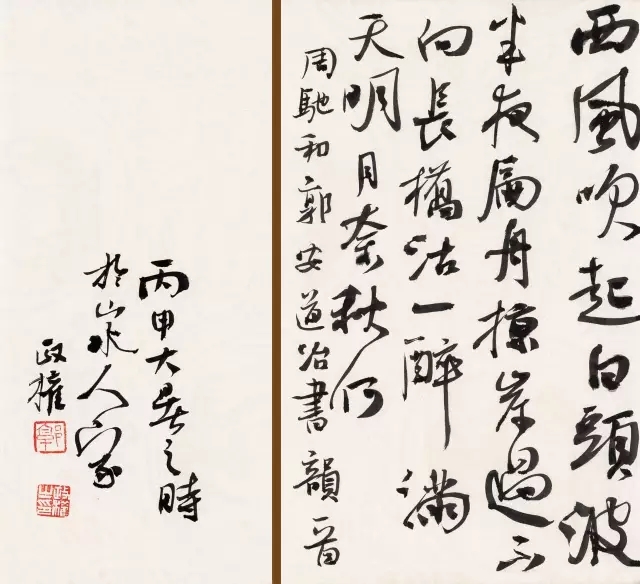 西風吹起白頭波
半夜扁舟掠岸過不
向長橋沽一醉滿
天明月奈秋何
周馳和郭安道治書韻一首
丙申大暑之時
於山水人家
政權
政權之印